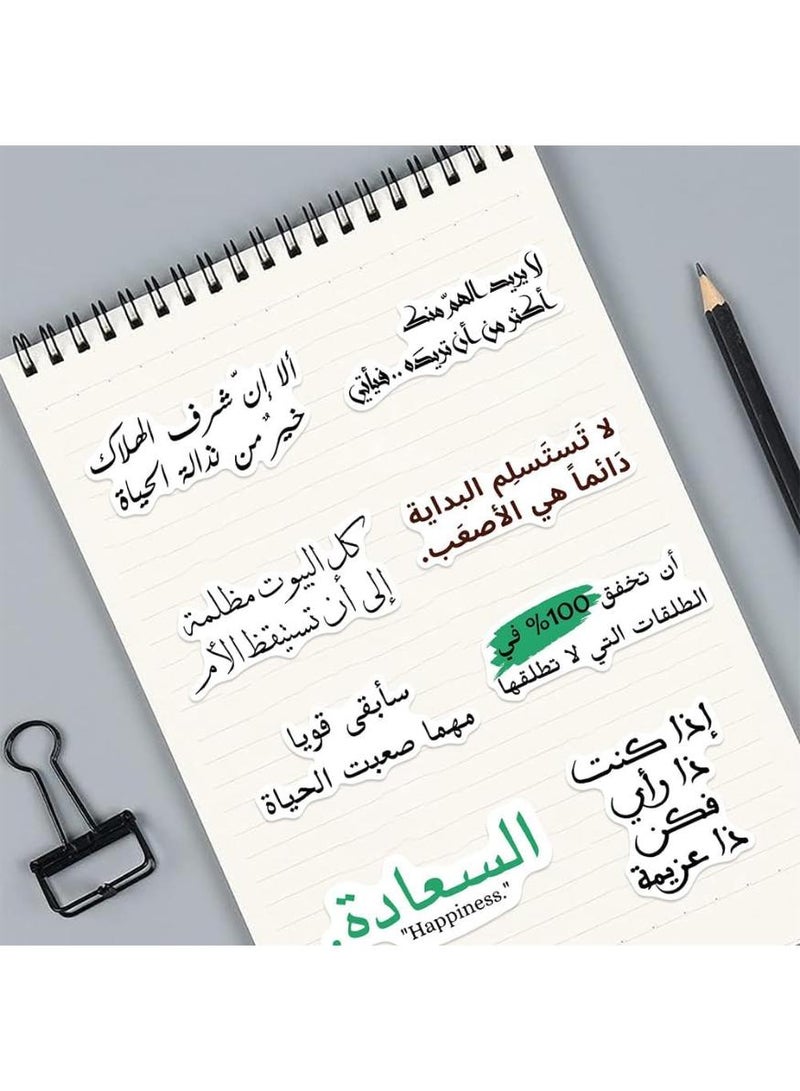 لا يريد الهمّ منك
أكثر من أن تريده .. فيأتي
ألا إنّ شرف الهلاك
خيرٌ من نذالة الحياة
لا تَستَسلِم البداية
دَائماً هي الأصعَب.
كل البيوت مظلمة
إلى أن تستيقظ الأم
أن تخفق 100% في
الطلقات التي لا تطلقها
سأبقى قويا
مهما صعبت الحياة
إذا كنت
ذا رأي
فكن
ذا عزيمة
السعادة.
"Happiness."